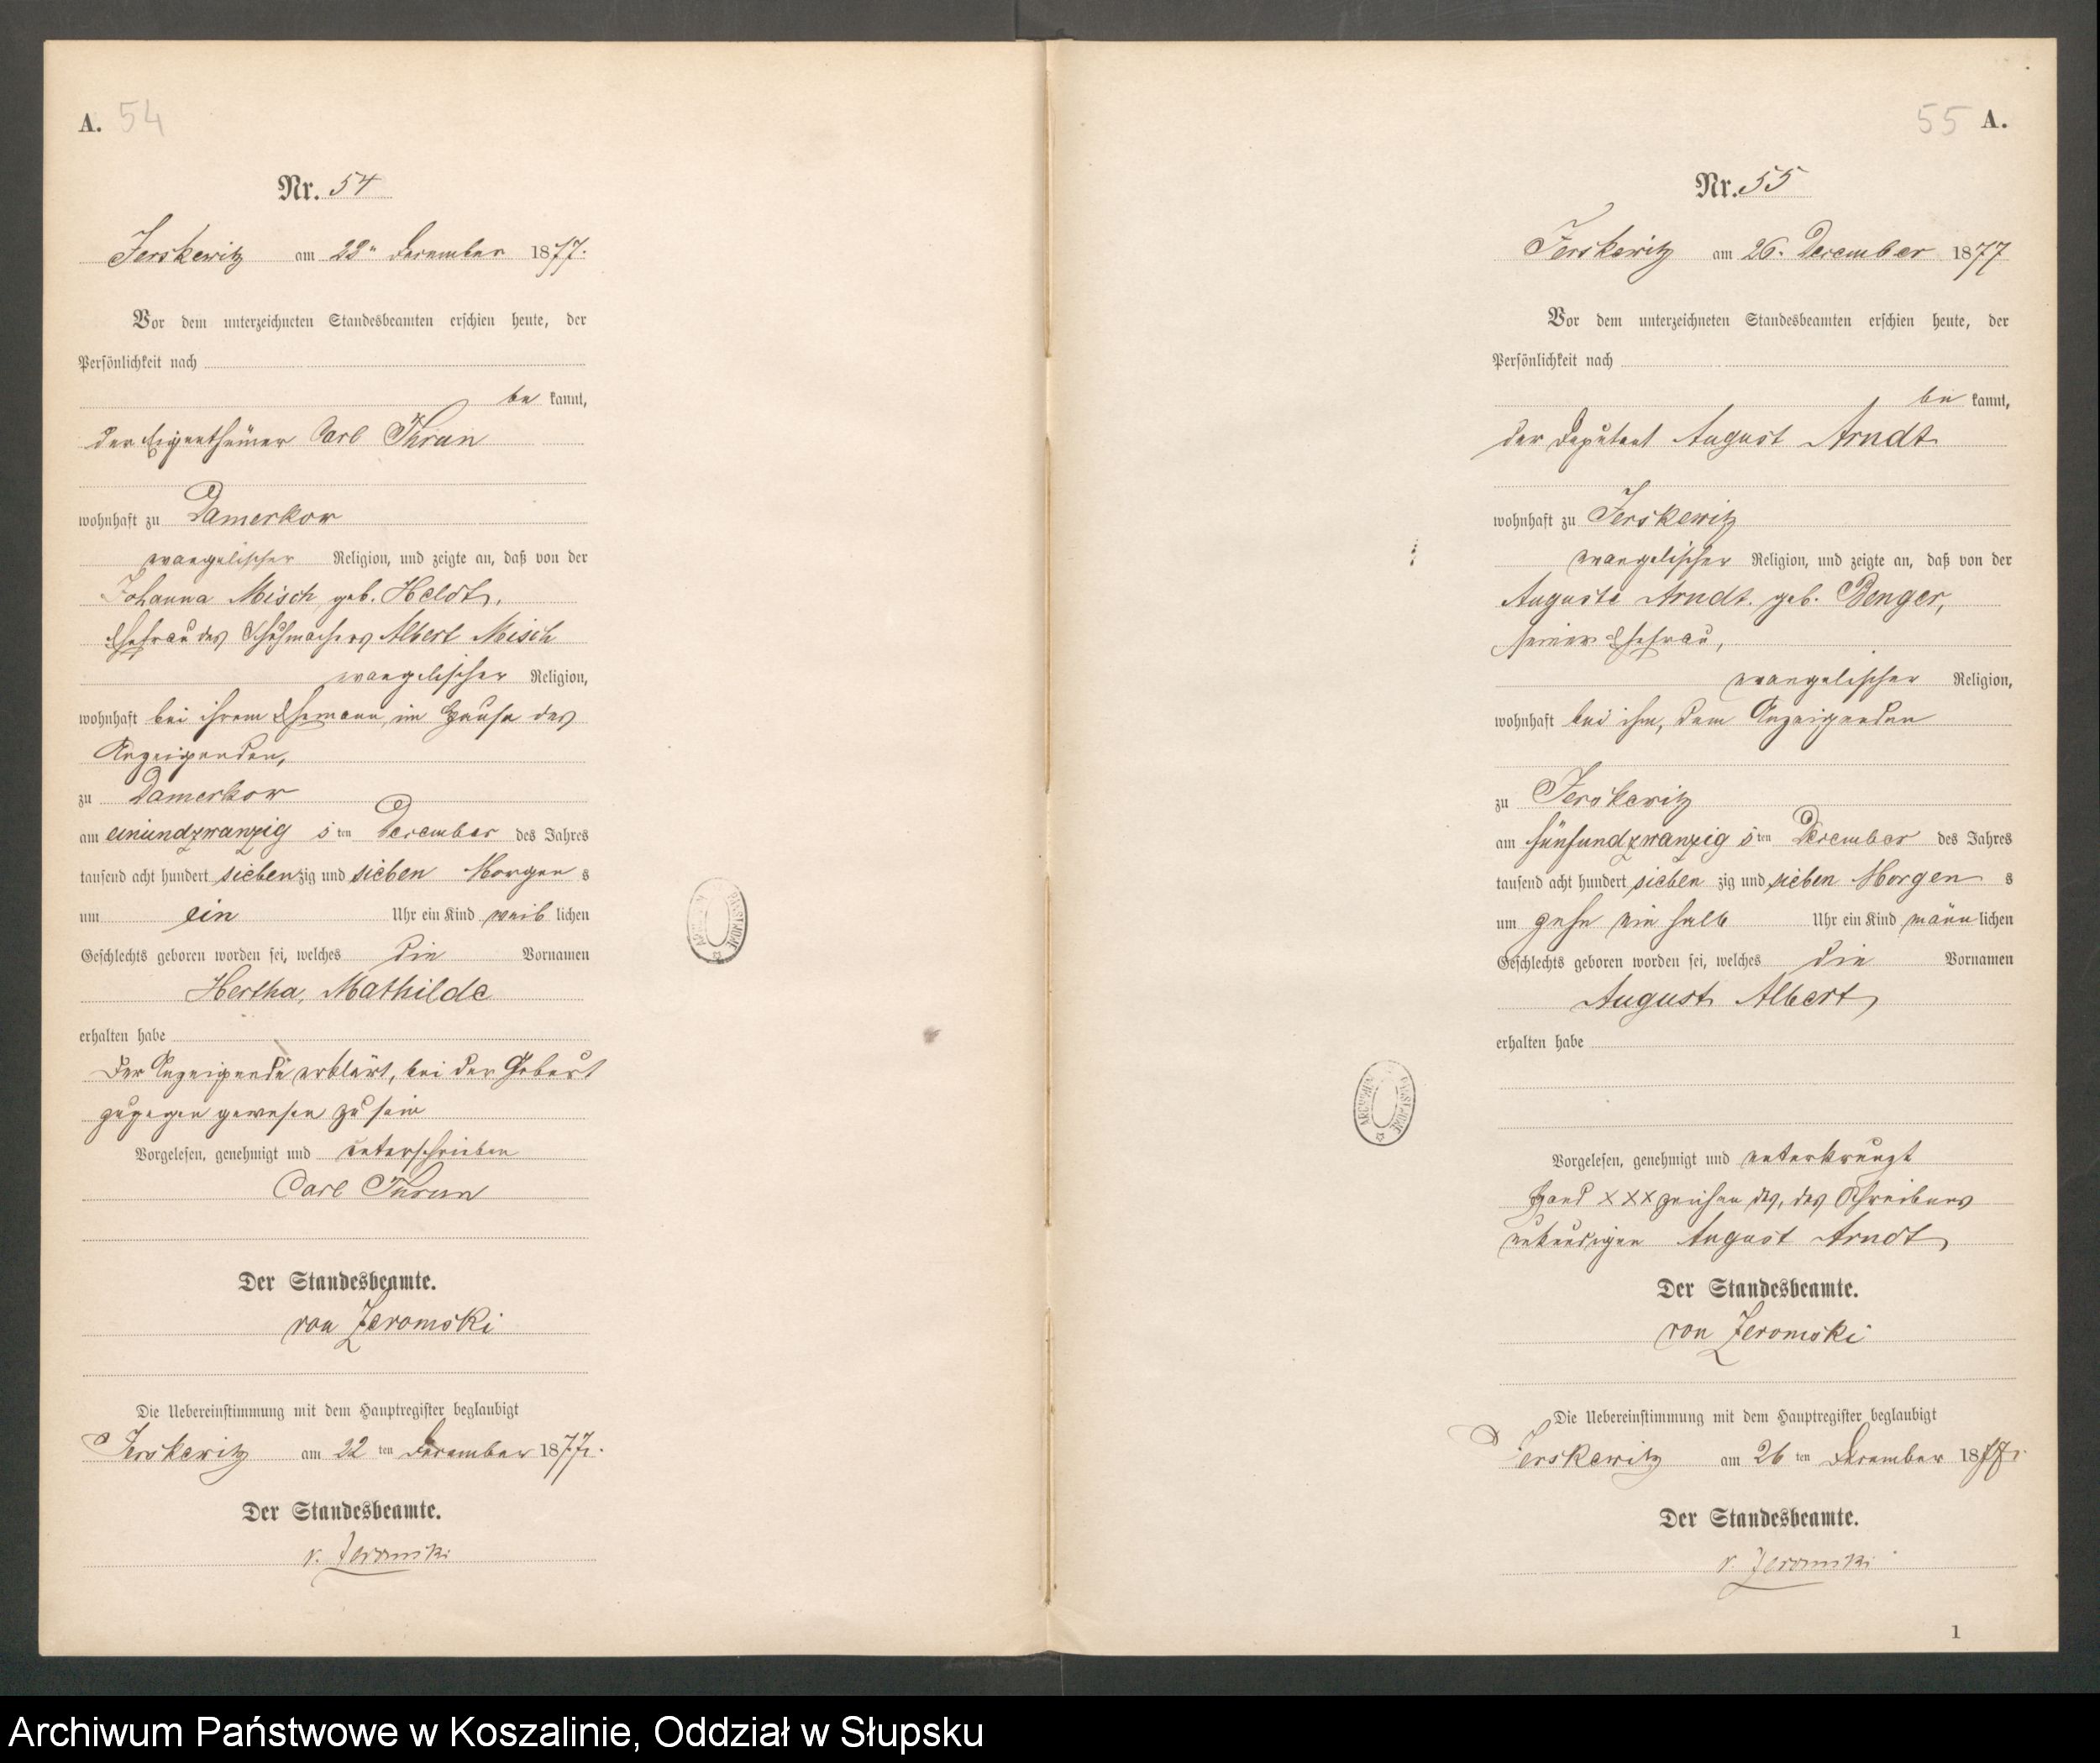 A. 54
Nr. 54
Jerskewitz am 22ⁿ December 1877.
Vor dem unterzeichneten Standesbeamten erschien heute, der
Persönlichkeit nach
be kannt,
der Eigenthümer Carl Thrun
wohnhaft zu Damerkow
evangelischer Religion, und zeigte an, daß von der
Johanna Misch, geb. Heldt,
Ehefrau des Schuhmachers Albert Misch
evangelischer Religion,
wohnhaft bei ihrem Ehemann, im Hause des
Anzeigenden,
zu Damerkow
am einundzwanzig s ten December des Jahres
tausend acht hundert sieben zig und sieben Morgen s
um ein Uhr ein Kind weib lichen
Geschlechts geboren worden sei, welches die Vornamen
Hertha, Mathilde
erhalten habe
Der Anzeigende erklärt, bei der Geburt
zugegen gewesen zu sein
Vorgelesen, genehmigt und unterschrieben
Carl Thrun
Der Standesbeamte.
von Zeromski
Die Uebereinstimmung mit dem Hauptregister beglaubigt
Jerskewitz am 22 ten December 1877.
Der Standesbeamte.
v. Zeromski
55 A.
Nr. 55
Jerskewitz am 26. December 1877
Vor dem unterzeichneten Standesbeamten erschien heute, der
Persönlichkeit nach
be kannt,
der Deputant August Arndt
wohnhaft zu Jerskewitz
evangelischer Religion, und zeigte an, daß von der
Auguste Arndt geb. Benger,
seiner Ehefrau,
evangelischer Religion,
wohnhaft bei ihm, dem Anzeigenden
zu Jerskewitz
am fünfundzwanzig s ten December des Jahres
tausend acht hundert sieben zig und sieben Morgen s
um zehn ein halb Uhr ein Kind männ lichen
Geschlechts geboren worden sei, welches die Vornamen
August Albert,
erhalten habe
Vorgelesen, genehmigt und unterkreuzt
Hand xxx zeichen des, des Schreibens
unkundigen August Arndt
Der Standesbeamte.
von Zeromski
Die Uebereinstimmung mit dem Hauptregister beglaubigt
Jerskewitz am 26 ten December 1877.
Der Standesbeamte.
v. Zeromski
1
Archiwum Państwowe w Koszalinie, Oddział w Słupsku